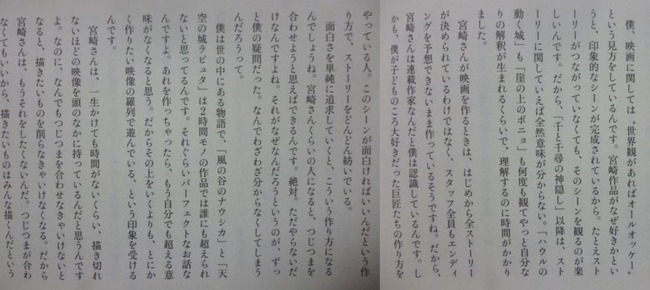 僕、映画に関しては〝世界観があればオールオッケー〟
という見方をしているんです。宮崎作品がなぜ好きかとい
うと、印象的なシーンが完成されているから。たとえスト
ーリーがつながっていなくても、そのシーンを観るのが楽
しいんです。だから、『千と千尋の神隠し』以降は、スト
ーリーに関していえば全然意味が分からない。『ハウルの
動く城』も『崖の上のポニョ』も何度も観てやっと自分な
りの解釈が生まれるくらいで、理解するのに時間がかかり
ました。
宮崎さんが映画を作るときは、はじめから全ストーリー
が決められているわけではなく、スタッフ全員もエンディ
ングを予想できないまま作っているそうですね。だから、
宮崎さんは連載作家なんだと僕は認識しているんです。し
かも、僕が子どものころ大好きだった巨匠たちの作り方を
やっている人。このシーンが面白ければいいんだという作
り方で、ストーリーをどんどん紡いでいる。
面白さを単純に追求していくと、こういう作り方になる
んでしょうね。宮崎さんくらいの人になると、つじつまを
合わせようと思えばできるんです。絶対。ただやらないだ
けなんですよね。それがなぜなんだろうというのが、ずっ
と僕の疑問だった。なんでわざわざ分からなくしてしまう
んだろうって。
僕は世の中にある物語で、『風の谷のナウシカ』と『天
空の城ラピュタ』は2時間モノの作品では誰にも超えられ
ないと思ってるんです。それぐらいパーフェクトなお話な
んですよ。あれを作っちゃったら、もう自分でも超える意
味がなくなると思う。だからその上をいくよりも、とにか
く作りたい映像の羅列で遊んでいる、という印象を受ける
んです。
宮崎さんは、一生かけても時間がないくらい、描き切れ
ないほどの映像を頭のなかに持っているんだと思うんです
よ。なのに、なんでもつじつまを合わせなきゃいけないと
なると、描きたいものを削らなきゃいけなくなる。だから
宮崎さんは、もうそれをしたくないんだ。つじつまが合わ
なくてもいいから、描きたいものはみんな描くんだという